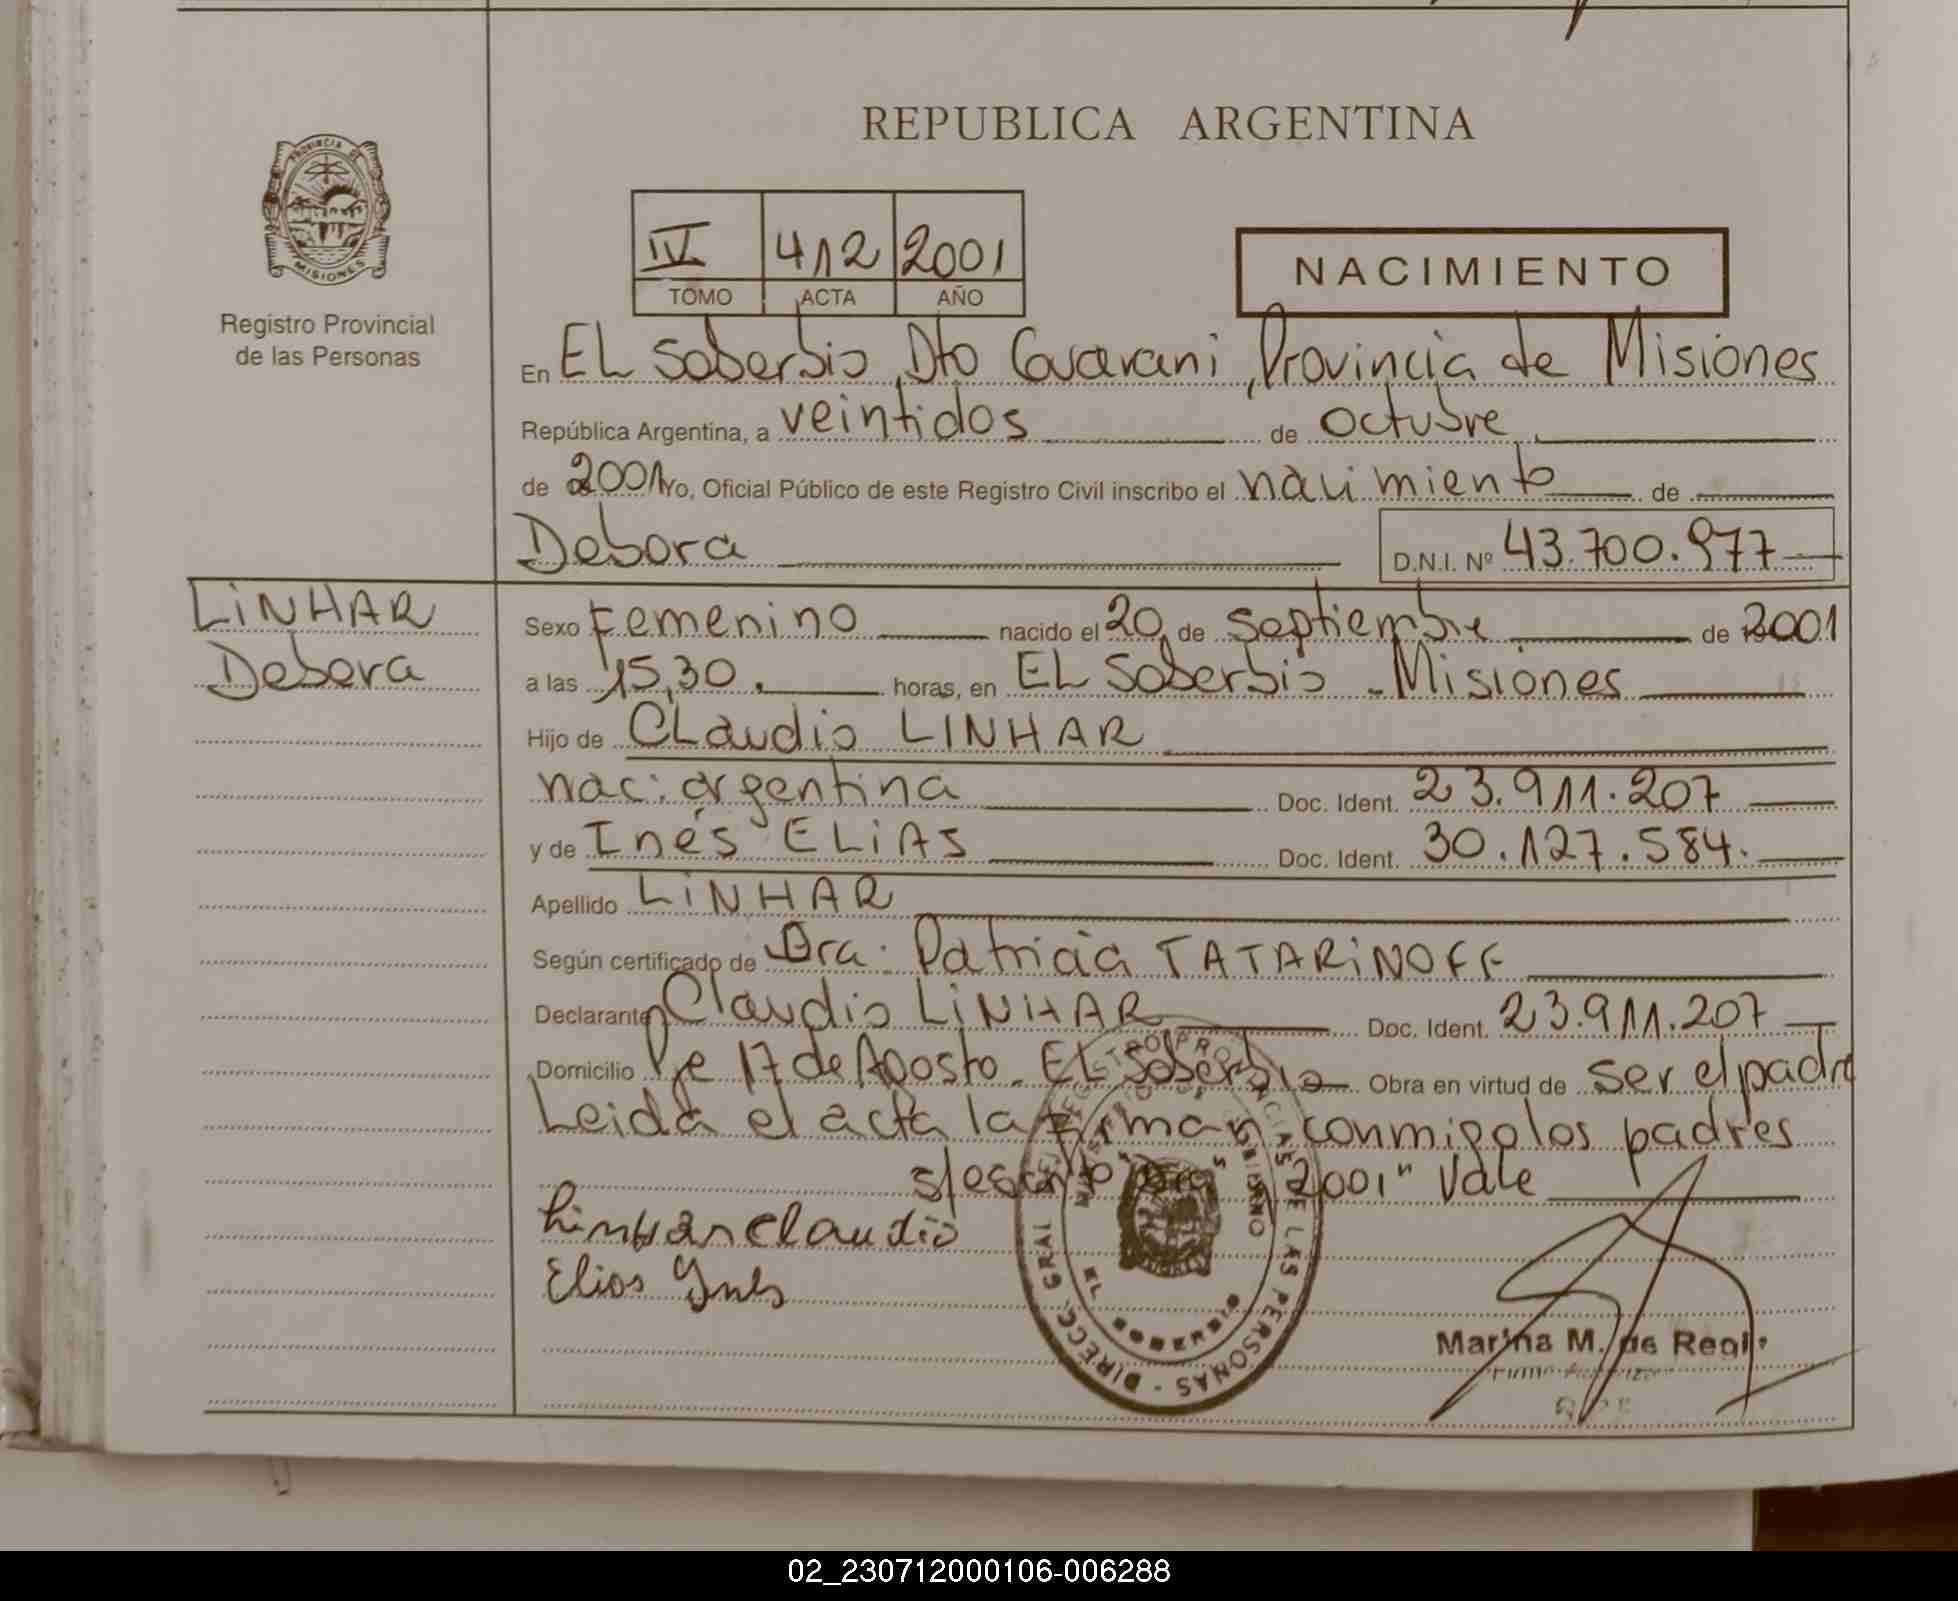 REPUBLICA ARGENTINA
PROVINCIA DE
MISIONES
Registro Provincial
de las Personas
IV 412 2001
TOMO ACTA AÑO
NACIMIENTO
En EL Soberbio, Dto Guarani, Provincia de Misiones
República Argentina, a veintidos de octubre
de 2001 Yo, Oficial Público de este Registro Civil inscribo el nacimiento de
Debora D.N.I. Nº 43.700.977
LiNHAR
Debora
Sexo Femenino nacido el 20 de Septiembre de 2001
a las 15,30. horas, en EL Soberbio - Misiones
Hijo de CLaudio LINHAR
nac: argentina Doc. Ident. 23.911.207
y de Inés ELiAS Doc. Ident. 30.127.584.
Apellido LiNHAR
Según certificado de Dra. Patricia TATARiNOFF
Declarante Claudio LiNHAR Doc. Ident. 23.911.207
Domicilio Pje 17 de Agosto - EL Soberbio Obra en virtud de ser el padre
Leida el acta la firman conmigo los padres
s/escrito "2001" Vale
Linhar claudio
Elias Ines
DIRECC. GRAL. DEL REGISTRO PROVINCIAL DE LAS PERSONAS
EL SOBERBIO
Marina M. de Regi
02_230712000106-006288